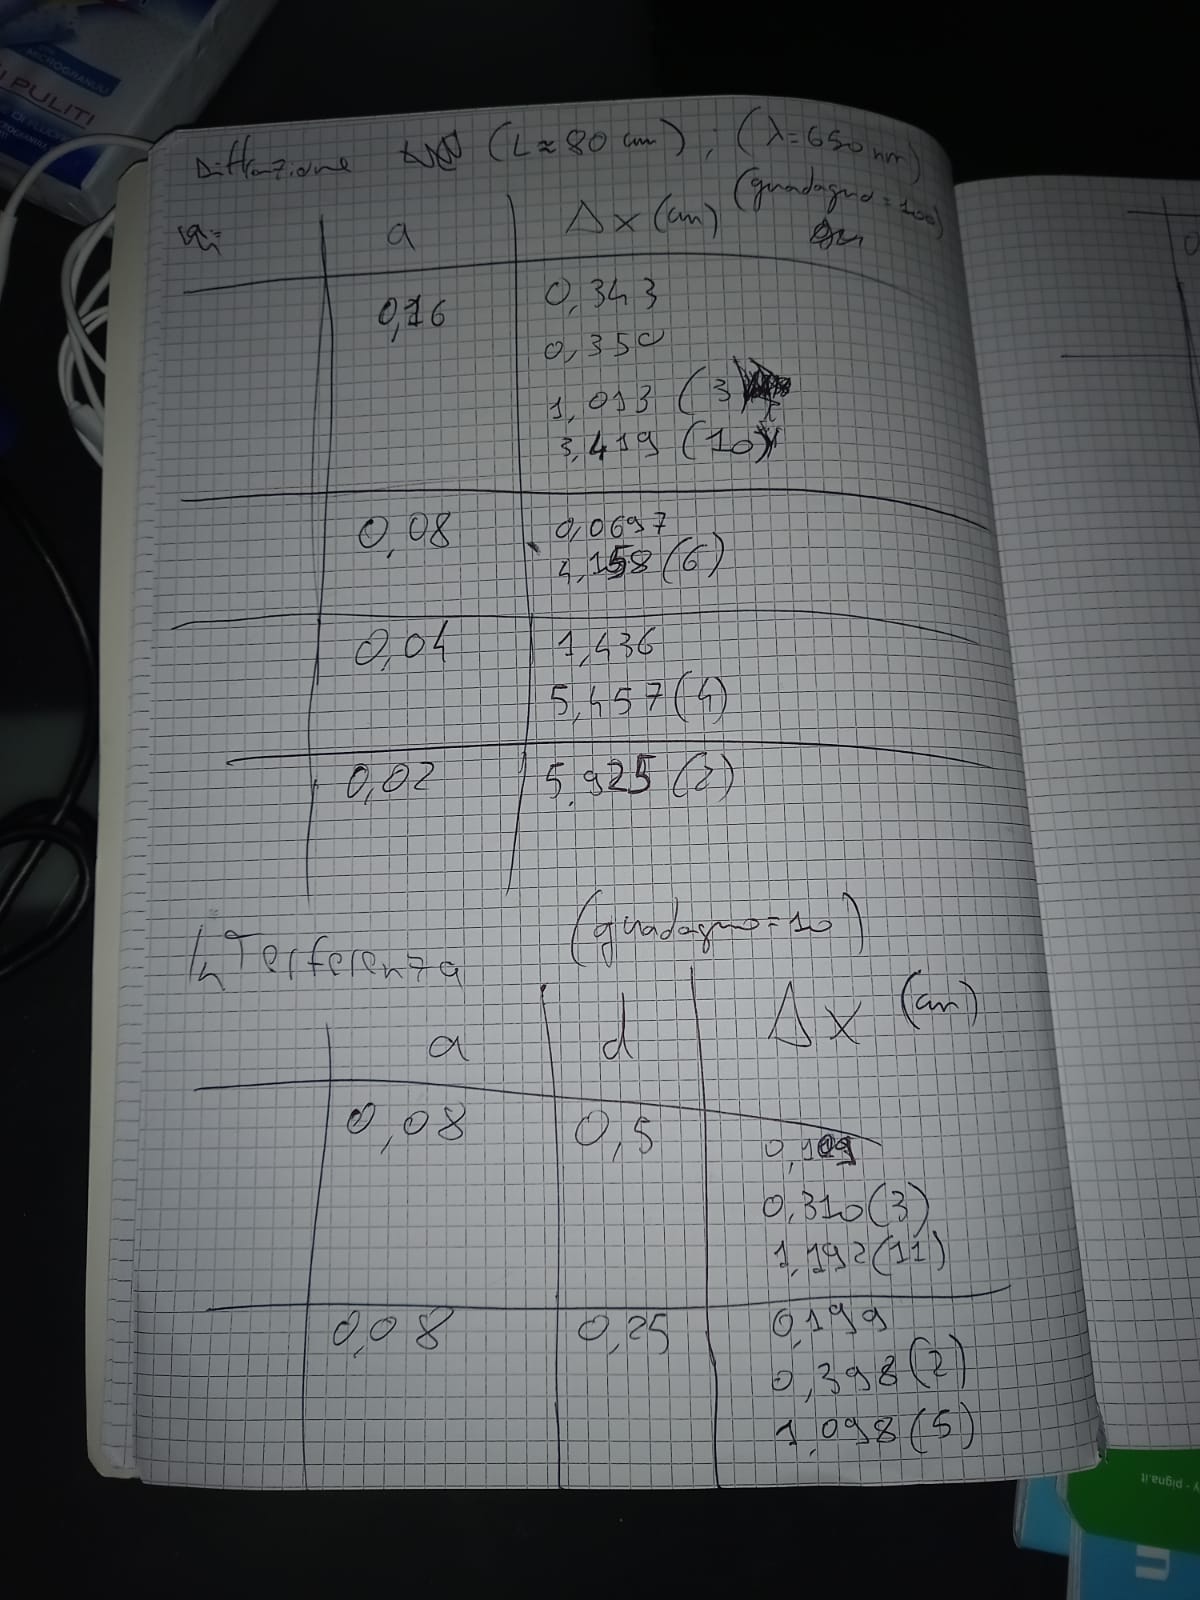 MICROGRANULI
I PULITI
Diffrazione (L ≈ 80 cm) ; (λ = 650 nm)
(guadagno = 100)
a Δx (cm)
0,16 0,343
0,350
1,013 (3)
3,419 (10)
0,08 0,0697
4,158 (6)
0,04 1,436
5,457 (4)
0,02 5,925 (2)
Interferenza (guadagno = 10)
a d Δx (cm)
0,08 0,5 0,109
0,310 (3)
1,192 (11)
0,08 0,25 0,199
0,398 (2)
1,098 (5)
y - pigna.it